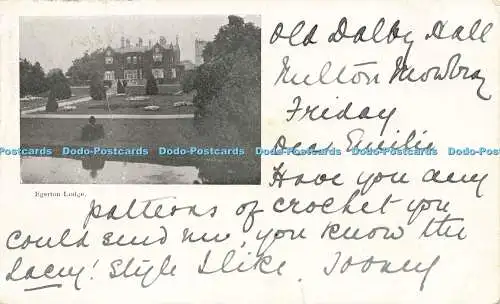 Old Dalby Hall
Melton Mowbray
Friday
Dear Emilie
Have you any
patterns of crochet you
could send me, you know the
Lacey! Style I like.
Egerton Lodge.
Dodo-Postcards Dodo-Postcards Dodo-Postcards Dodo-Postcards Dodo-Postcards Dodo-Postcards